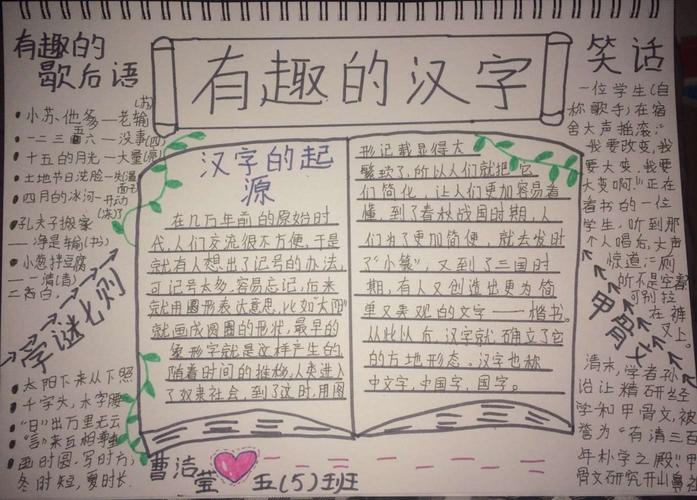 有趣的汉字
有趣的
歇后语
小苏、他爹——老输(苏)
一二三五六——没事(四)
十五的月光——大量(亮)
土地节日洗脸——失(湿)面子
四月的冰河——开动(冻)了
孔夫子搬家
——净是输(书)
小葱拌豆腐
——一清(青)
二者白。
字谜七则
太阳下来从下照
千字头,木字腰
"日"出万里无云
"言"来互相尊
画时圆,写时方,
冬时短,夏时长.
汉字的起
源
在几万年前的原始时
代,人们交流很不方便,于是
就有人想出了记号的办法,
可记号太多,容易忘记,后来
就用图形表达意思,比如"太阳"
就画成圆圈的形状,最早的
象形字就是这样产生的,
随着时间的推移,人类进入
了奴隶社会,到了这时,用图
形记载显得太
繁琐了,所以人们就把它
们简化,让人们更加容易看
懂,到了春秋战国时期,人
们为了更加简便,就去发明
了"小篆",又到了三国时
期,有人又创造出更为简
单又美观的文字——楷书。
从此以后,汉字就确立了它
的方地形态。汉字也称
中文字,中国字,国字。
笑话
一位学生(自
称歌手)在宿
舍大声摇滚:"
我要改变,我
要大变,我要
大变啊!"正在
看书的一位
学生,听到那
个人唱后,大声
惊道:"厕
所不是空着
可别拉
在裤
叉上。
甲骨文
清末,学者孙
诒让精研经
学和甲骨文,被
誉为"有清三百
年朴学之殿"。甲
骨文研究开山鼻
曹洁莹
五(5)班